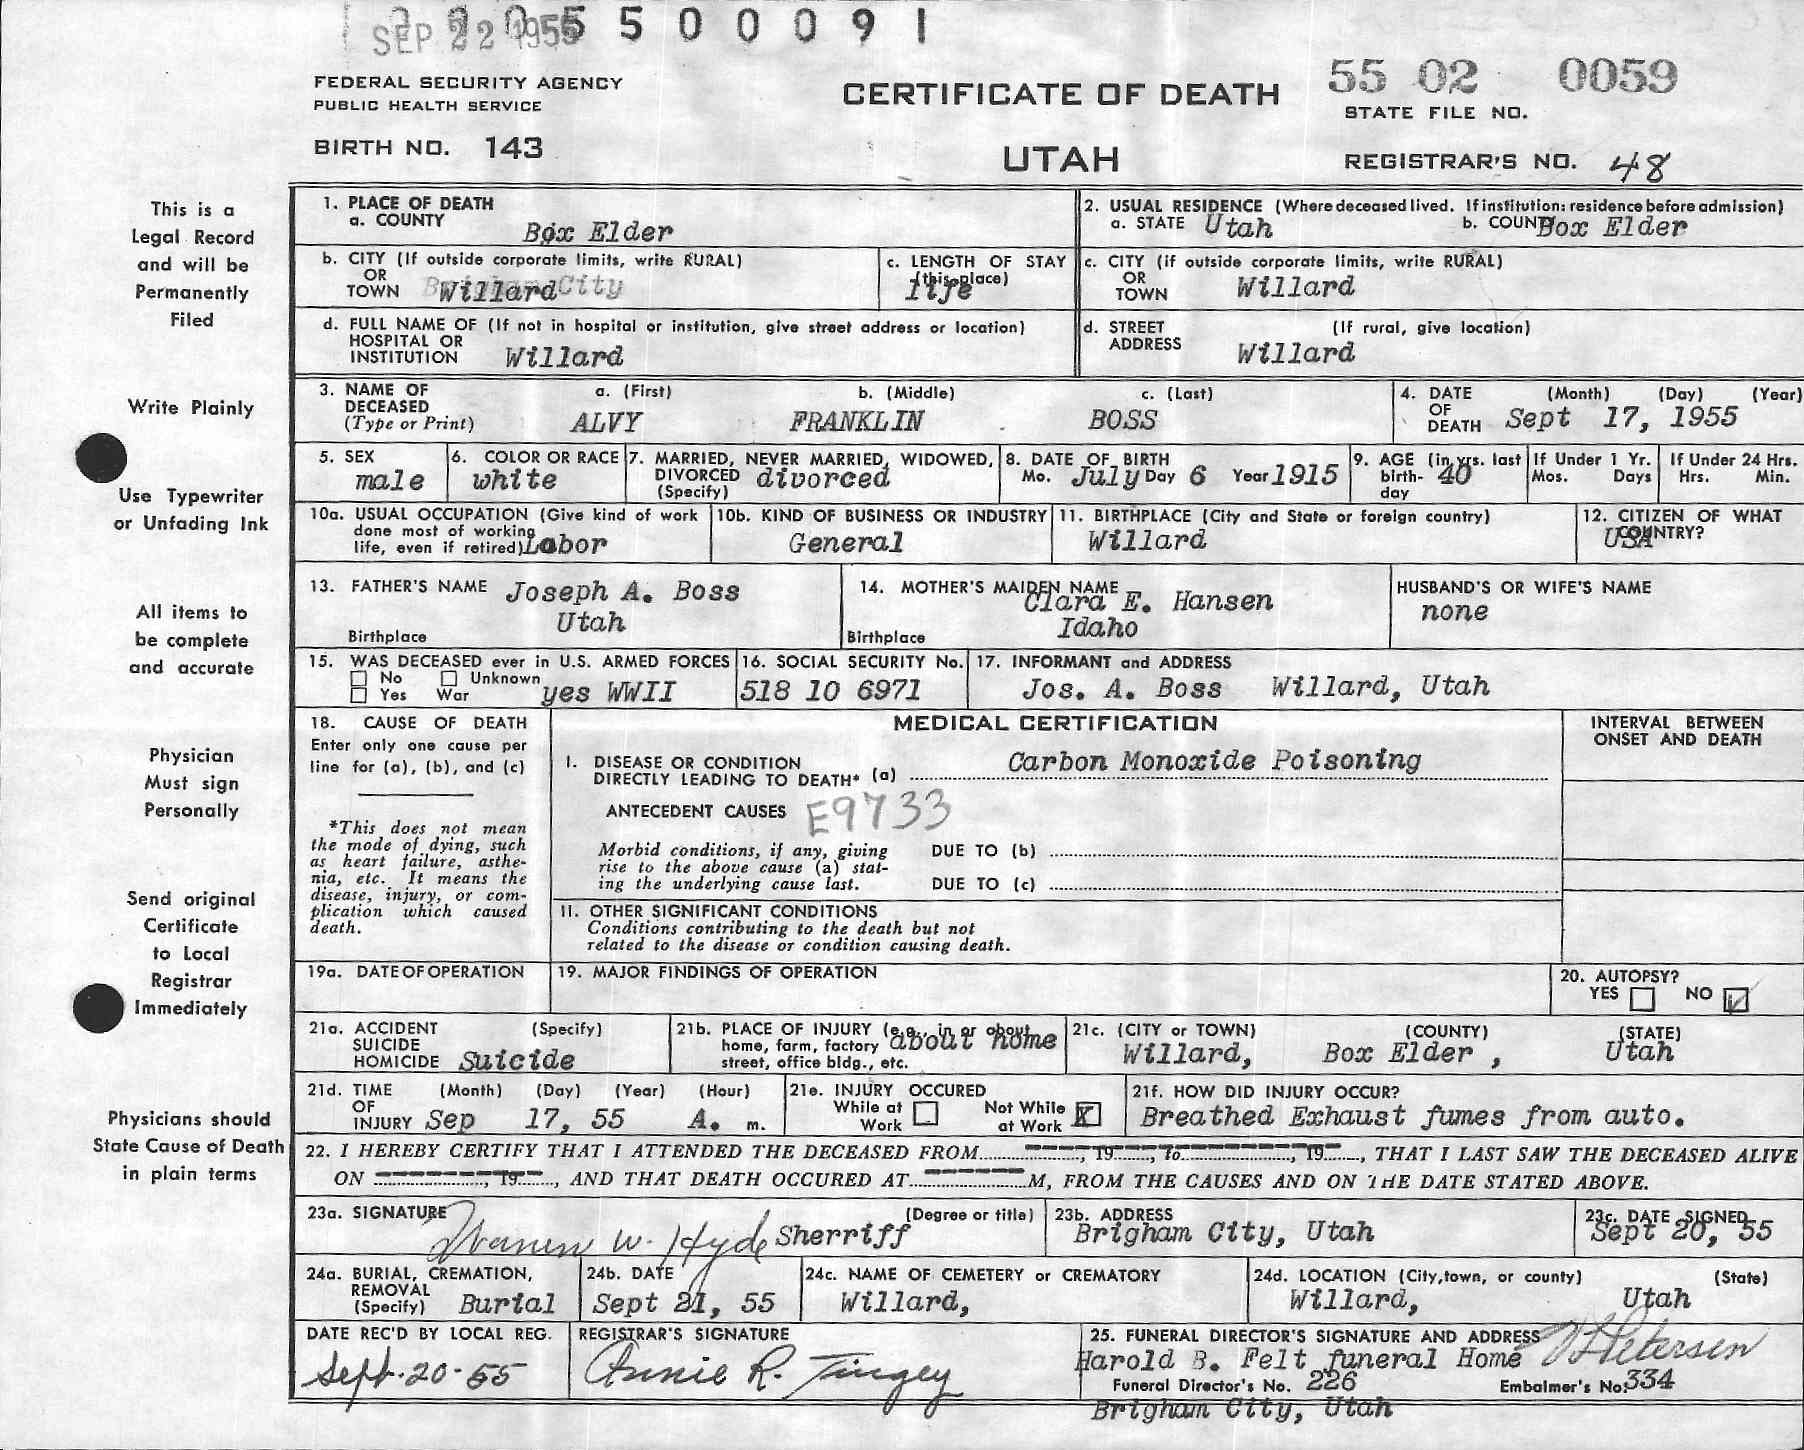 SEP 22 1955 5 5 0 0 0 9 1
FEDERAL SECURITY AGENCY
PUBLIC HEALTH SERVICE
BIRTH NO. 143
CERTIFICATE OF DEATH
UTAH
55 02 0059
STATE FILE NO.
REGISTRAR'S NO. 48
This is a
Legal Record
and will be
Permanently
Filed
Write Plainly
Use Typewriter
or Unfading Ink
All items to
be complete
and accurate
Physician
Must sign
Personally
Send original
Certificate
to Local
Registrar
Immediately
Physicians should
State Cause of Death
in plain terms
1. PLACE OF DEATH
a. COUNTY Box Elder
2. USUAL RESIDENCE (Where deceased lived. If institution: residence before admission)
a. STATE Utah b. COUNTY Box Elder
b. CITY (If outside corporate limits, write RURAL)
OR
TOWN Brigham City Willard
c. LENGTH OF STAY
(this place)
life
c. CITY (if outside corporate limits, write RURAL)
OR
TOWN Willard
d. FULL NAME OF (If not in hospital or institution, give street address or location)
HOSPITAL OR
INSTITUTION Willard
d. STREET (If rural, give location)
ADDRESS Willard
3. NAME OF a. (First) b. (Middle) c. (Last)
DECEASED
(Type or Print) ALVY FRANKLIN BOSS
4. DATE (Month) (Day) (Year)
OF
DEATH Sept 17, 1955
5. SEX
male
6. COLOR OR RACE
white
7. MARRIED, NEVER MARRIED, WIDOWED,
DIVORCED divorced
(Specify)
8. DATE OF BIRTH
Mo. July Day 6 Year 1915
9. AGE (in yrs. last
birth- 40
day
If Under 1 Yr.
Mos. Days
If Under 24 Hrs.
Hrs. Min.
10a. USUAL OCCUPATION (Give kind of work
done most of working
life, even if retired) Labor
10b. KIND OF BUSINESS OR INDUSTRY
General
11. BIRTHPLACE (City and State or foreign country)
Willard
12. CITIZEN OF WHAT
COUNTRY?
USA
13. FATHER'S NAME Joseph A. Boss
Utah
Birthplace
14. MOTHER'S MAIDEN NAME
Clara E. Hansen
Idaho
Birthplace
HUSBAND'S OR WIFE'S NAME
none
15. WAS DECEASED ever in U.S. ARMED FORCES
No Unknown
Yes War yes WWII
16. SOCIAL SECURITY No.
518 10 6971
17. INFORMANT and ADDRESS
Jos. A. Boss Willard, Utah
18. CAUSE OF DEATH
Enter only one cause per
line for (a), (b), and (c)
*This does not mean
the mode of dying, such
as heart failure, asthe-
nia, etc. It means the
disease, injury, or com-
plication which caused
death.
MEDICAL CERTIFICATION
I. DISEASE OR CONDITION
DIRECTLY LEADING TO DEATH* (a) Carbon Monoxide Poisoning
ANTECEDENT CAUSES E9733
Morbid conditions, if any, giving DUE TO (b)
rise to the above cause (a) stat-
ing the underlying cause last. DUE TO (c)
II. OTHER SIGNIFICANT CONDITIONS
Conditions contributing to the death but not
related to the disease or condition causing death.
INTERVAL BETWEEN
ONSET AND DEATH
19a. DATE OF OPERATION
19. MAJOR FINDINGS OF OPERATION
20. AUTOPSY?
YES NO
21a. ACCIDENT (Specify)
SUICIDE
HOMICIDE Suicide
21b. PLACE OF INJURY (e.g., in or about
home, farm, factory about home
street, office bldg., etc.
21c. (CITY or TOWN) (COUNTY) (STATE)
Willard, Box Elder , Utah
21d. TIME (Month) (Day) (Year) (Hour)
OF
INJURY Sep 17, 55 A. m.
21e. INJURY OCCURED
While at Not While X
Work at Work
21f. HOW DID INJURY OCCUR?
Breathed Exhaust fumes from auto.
22. I HEREBY CERTIFY THAT I ATTENDED THE DECEASED FROM , 19 , to , 19 , THAT I LAST SAW THE DECEASED ALIVE
ON , 19 , AND THAT DEATH OCCURED AT M, FROM THE CAUSES AND ON THE DATE STATED ABOVE.
23a. SIGNATURE (Degree or title)
Warren W. Hyde Sherriff
23b. ADDRESS
Brigham City, Utah
23c. DATE SIGNED
Sept 20, 55
24a. BURIAL, CREMATION,
REMOVAL
(Specify) Burial
24b. DATE
Sept 21, 55
24c. NAME OF CEMETERY or CREMATORY
Willard,
24d. LOCATION (City, town, or county) (State)
Willard, Utah
DATE REC'D BY LOCAL REG.
Sept. 20-55
REGISTRAR'S SIGNATURE
Annie R. Tingey
25. FUNERAL DIRECTOR'S SIGNATURE AND ADDRESS
Harold B. Felt funeral Home Petersen
Funeral Director's No. 226 Embalmer's No. 334
Brigham City, Utah